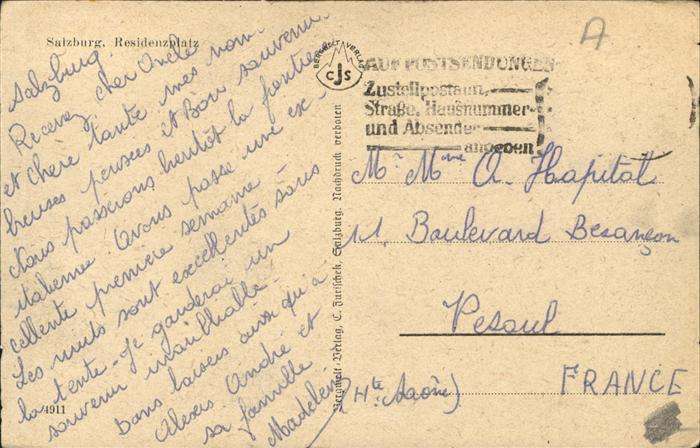 Salzburg, Residenzplatz
Salzburg
Recevez cher Oncle
et chère tante mes nom-
breuses pensées et Bon souvenir.
Nous passerons bientôt la frontière
italienne avons passé une ex-
cellente première semaine.
Les nuits sont excellentes sous
la tente. Je garderai un
souvenir inoubliable
bons baisers ainsi qu'à
Alexis André et
sa famille
Madeleine
4911
BERGWELT-VERLAG
CJS
Bergwelt-Verlag, C. Jurischek, Salzburg. Nachdruck verboten
A
AUF POSTSENDUNGEN
Zustellpostamt,
Straße, Hausnummer
und Absender
angeben
Mr Mme A. Hapitat
11, Boulevard Besançon
Vesoul
(Hte Saône)
FRANCE